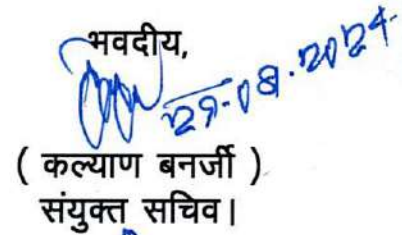 भवदीय,
29.08.2024
( कल्याण बनर्जी )
संयुक्त सचिव।